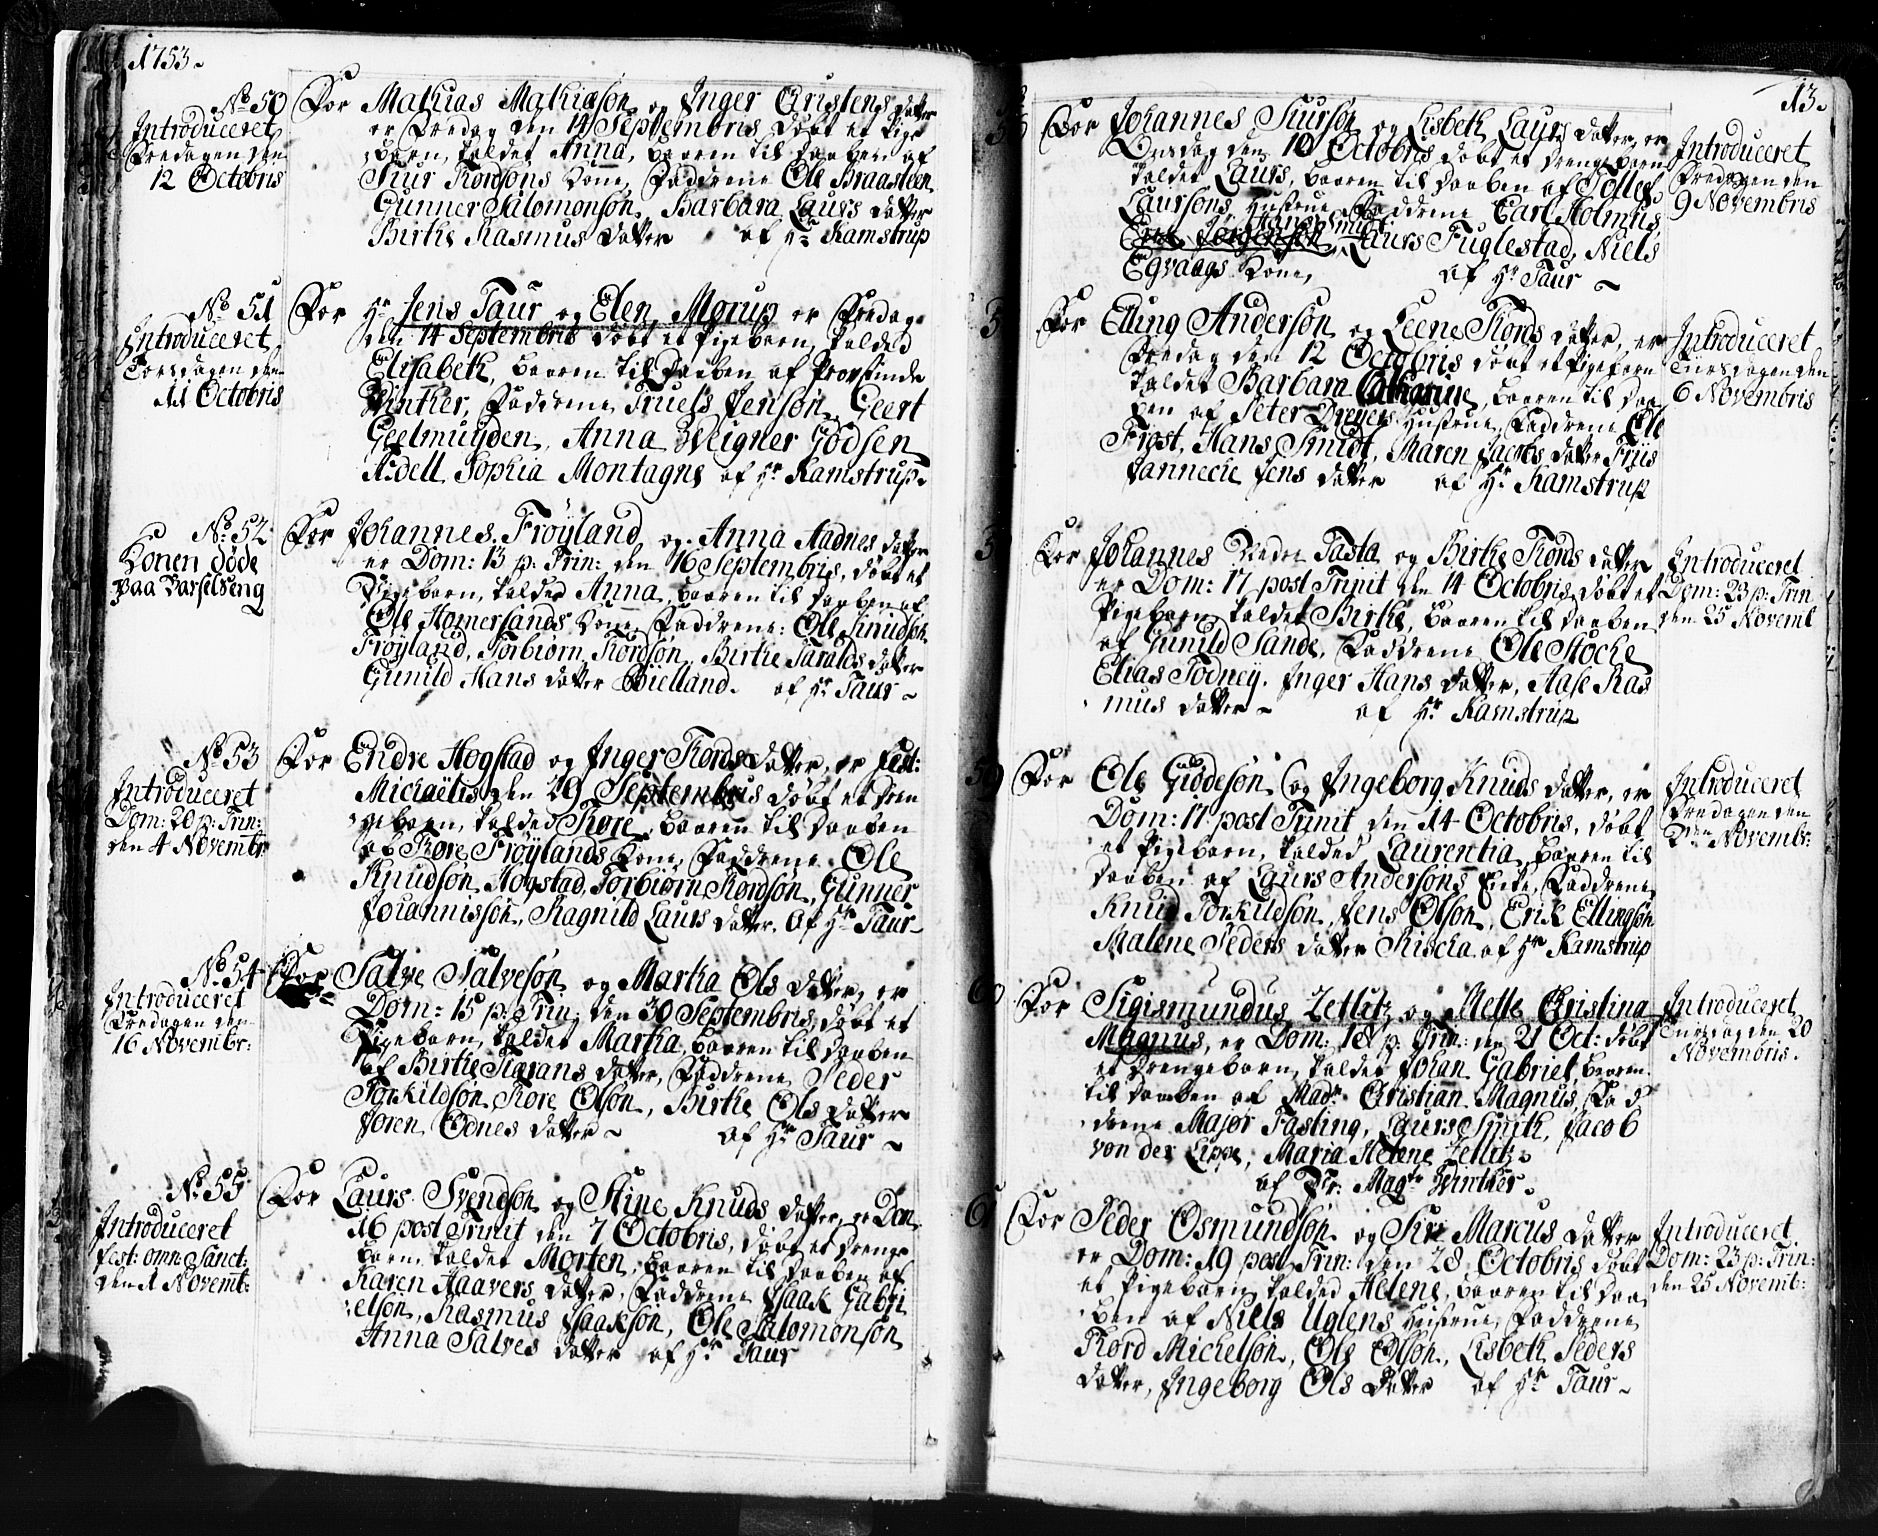 1753.
No. 50
Introduceret
Fredagen den
12 Octobris
For Mathias Mathiæsøn og Inger Cristens datter
er Fredag den 14 Septembris døbt et Pige
barn, kaldet Anna, baaren til daaben af
Siur Tordsøns Kone, Faddrene Ole Braasteen
Gunner Salomonsøn, Barbara Laurs datter
Birthe Rasmus datter af Hr. Ramstrup
No. 51
Introduceret
Torsdagen den
11 Octobris
For Hr. Jens Taur og Elen Morup er Fredag
den 14 Septembris døbt et Pigebarn, kalded
Elisabeth, baaren til Daaben af Provstinde
Winther, Faddrene Truels Jensøn, Geert
Geelmuyden, Anna Weigner Godsen
Sophia Montagne af Hr. Ramstrup.
No. 52
Konen døde
paa Barselseng
For Johannes Frøyland og Anna Aadnes datter
er Dom: 13 p: Trin: den 16 Septembris, døbt et
Pigebarn, kalded Anna, baaren til daaben af
Ole Homersands Kone, Faddrene: Ole Knudsøn
Frøyland, Torbiørn Tordsøn, Birthe Taralds datter
Gunild Hans datter Bielland. af Hr. Taur ~
No. 53
Introduceret
Dom: 20 p: Trin:
den 4 Novembr:
For Endre Hogstad og Inger Tords datter, er Fest:
Michaëlis den 29 Septembris døbt et Dren
gebarn, kalded Tore, baaren til daaben
af Tore Frøylands Kone, Faddrene Ole
Knudsøn Hogstad, Torbiørn Tordsøn, Gunner
Johannissøn, Ragnild Laurs datter. Af Hr. Taur ~
No. 54
Introduceret
Fredagen den
16 Novembr:
For Salve Salvesøn og Martha Ols datter, er
Dom: 15 p: Trin: den 30 Septembris, døbt et
Pigebarn, kaldet Martha, baaren til daaben
af Birthe Tarans datter, Faddrene Peder
Torkildsøn, Tore Olsøn, Birthe Ols datter
Joren Ednes datter ~ af Hr. Taur ~
No. 55
Introduceret
Fest: omn: Sanct:
den 1 Novemt:
For Laurs Svendsøn og Stine Knuds datter, er Dom
16 post Trinit den 7 Octobris, døbt et Drenge
barn, kaldet Morten, baaren til daaben af
Karen Haavers datter, Faddrene Isaak Gabri
elsøn, Rasmus Isaaksøn, Ole Salomonsøn
Anna Salves datter af Hr. Taur
13.
For Johannes Siursøn og Lisbeth Laurs datter, er
Onsdag den 10 Octobris døbt et drengebarn
kaldet Laurs, baaren til daaben af Tollef
Laursøns Hustrue, Faddrene Carl Holmius
Hans Smidt
Jørgensøn, Laurs Fuglestad, Niels
Egvaags Kone, af Hr. Taur ~
Introduceret
Fredagen den
9 Novembris
For Elling Andersøn og Leene Tords datter, er
Fredag den 12 Octobris døbt et Pigebarn
kaldet Barbara Catharine, baaren til Daa
ben af Peter Dreyers Hustrue, Faddrene Ole
Frost, Hans Smidt, Maren datter Friis
Jannecie Jens datter af Hr. Ramstrup
Introduceret
Tiirsdagen den
6 Novembris
For Johannes Tasta og Birthe Tords datter
er Dom: 17 post Trinit den 14 Octobris døbt et
Pigebarn kaldet Birthe, baaren til daaben
af Gunild Sande, Faddrene Ole Stocke
Elias Todney, Inger Hans datter, Aase Ras
mus datter ~ af Hr. Ramstrup
Introduceret
Dom: 23 p: Trin
den 25 Novemt
59
For Ole Giddesøn og Ingeborg Knuds datter, er
Dom: 17 post Trinit den 14 Octobris, døbt
et Pigebarn, kalded Laurentia, baaren til
daaben af Laurs Andersøns Enke, Faddrene
Knud Torkildsøn, Jens Olsøn, Erik Ellingsøn
Malene Peders datter Riscka af Hr. Ramstrup
Introduceret
Fredagen den
2den Novembr:
60
For Sigismundus Zetlitz og Mette Cristina
Magnus, er Dom: 18 p: Trin: den 21 Oct: døbt
et Drengebarn, kaldet Johan Gabriel, baaren
til daaben af Madm Cristian Magnus, Fad
drene Major Fasting, Laurs Smith, Jacob
von der Lippe, Maria Helene Zetlitz.
af Pr: Magr Winther.
Introduceret
Tiirsdag den 20
Novembris.
61
For Peder Osmundsøn og Siri Marcus datter
er Dom: 19 post Trin: den 28 Octobris døbt
et Pigebarn, kalded Helene, baaren til daa
ben af Niels Uglens Hustrue, Faddrene
Tord Michelsøn, Ole Olsøn, Lisbeth Peders
datter, Ingeborg Ols datter af Hr. Taur ~
Introduceret
Dom: 23 p: Trin:
den 25 Novemt: